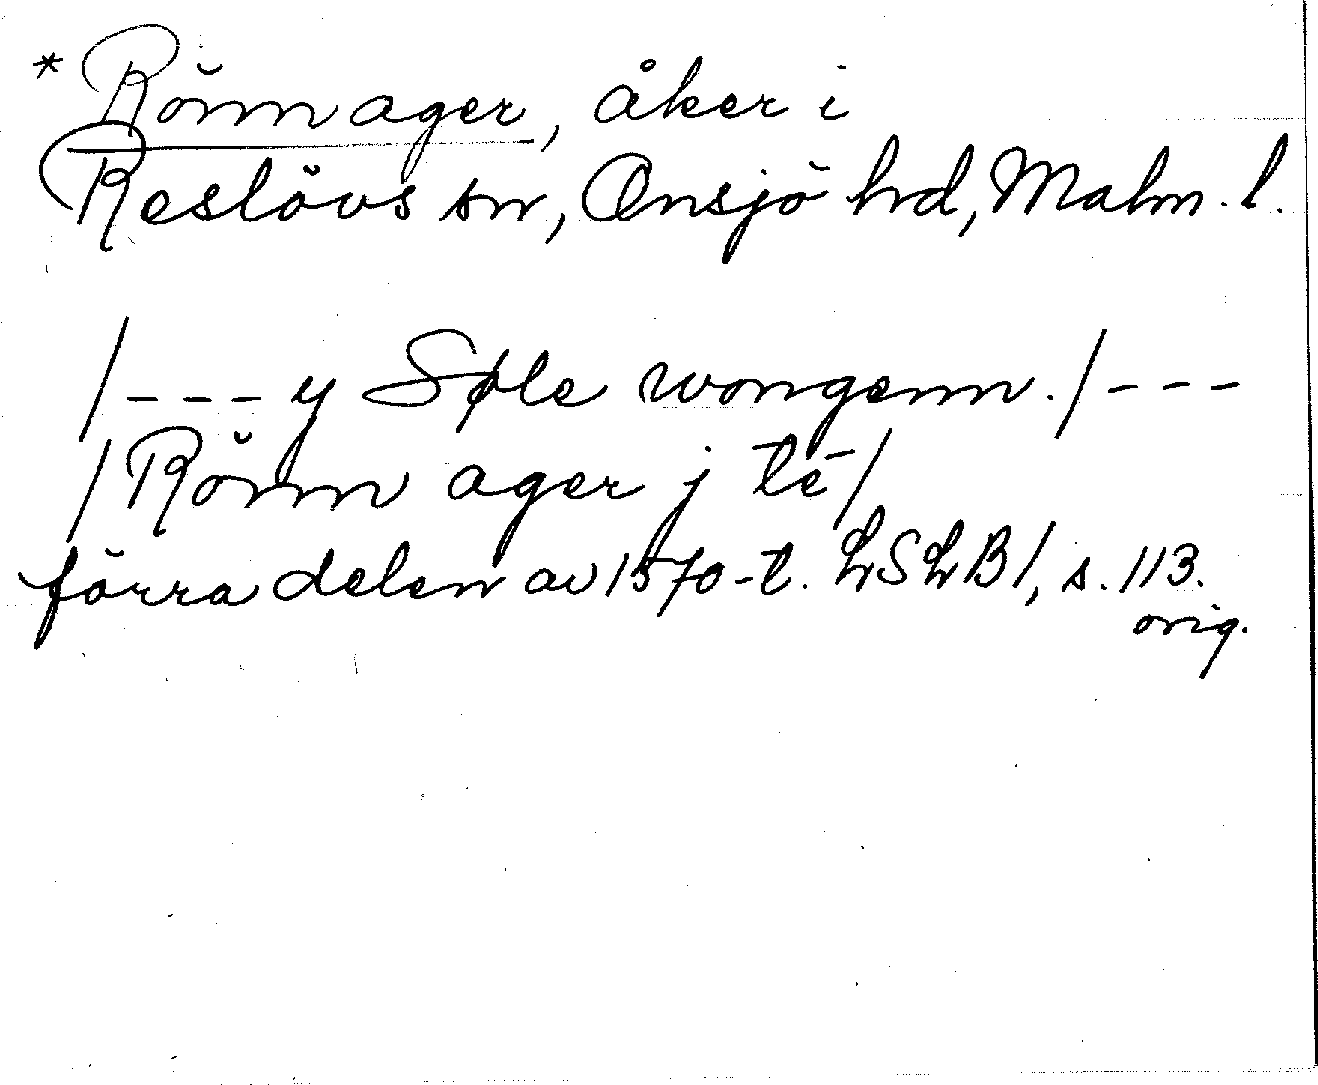 * Rönnager, åker i
Reslövs sn, Onsjö hd, Malm. l.
/--- y Søle wongenn./---
/Rönn ager j te/
förra delen av 1570-t. LSLB 1, s. 113.
orig.